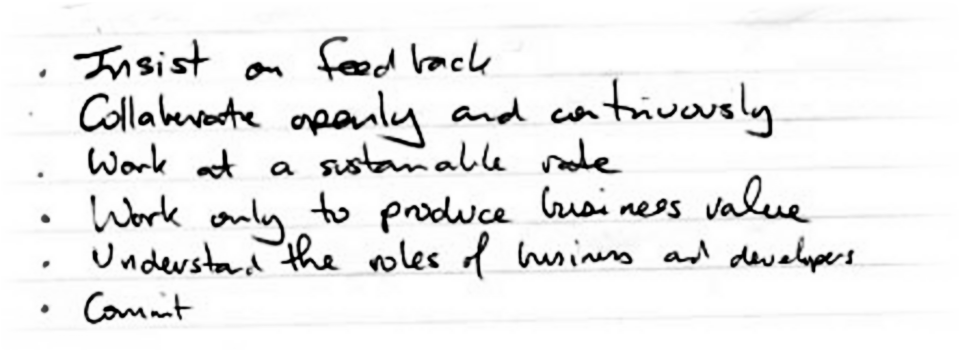 · Insist on feedback
Collaborate openly and continuously
· Work at a sustainable rate
· Work only to produce business value
· Understand the roles of business and developers
· Commit